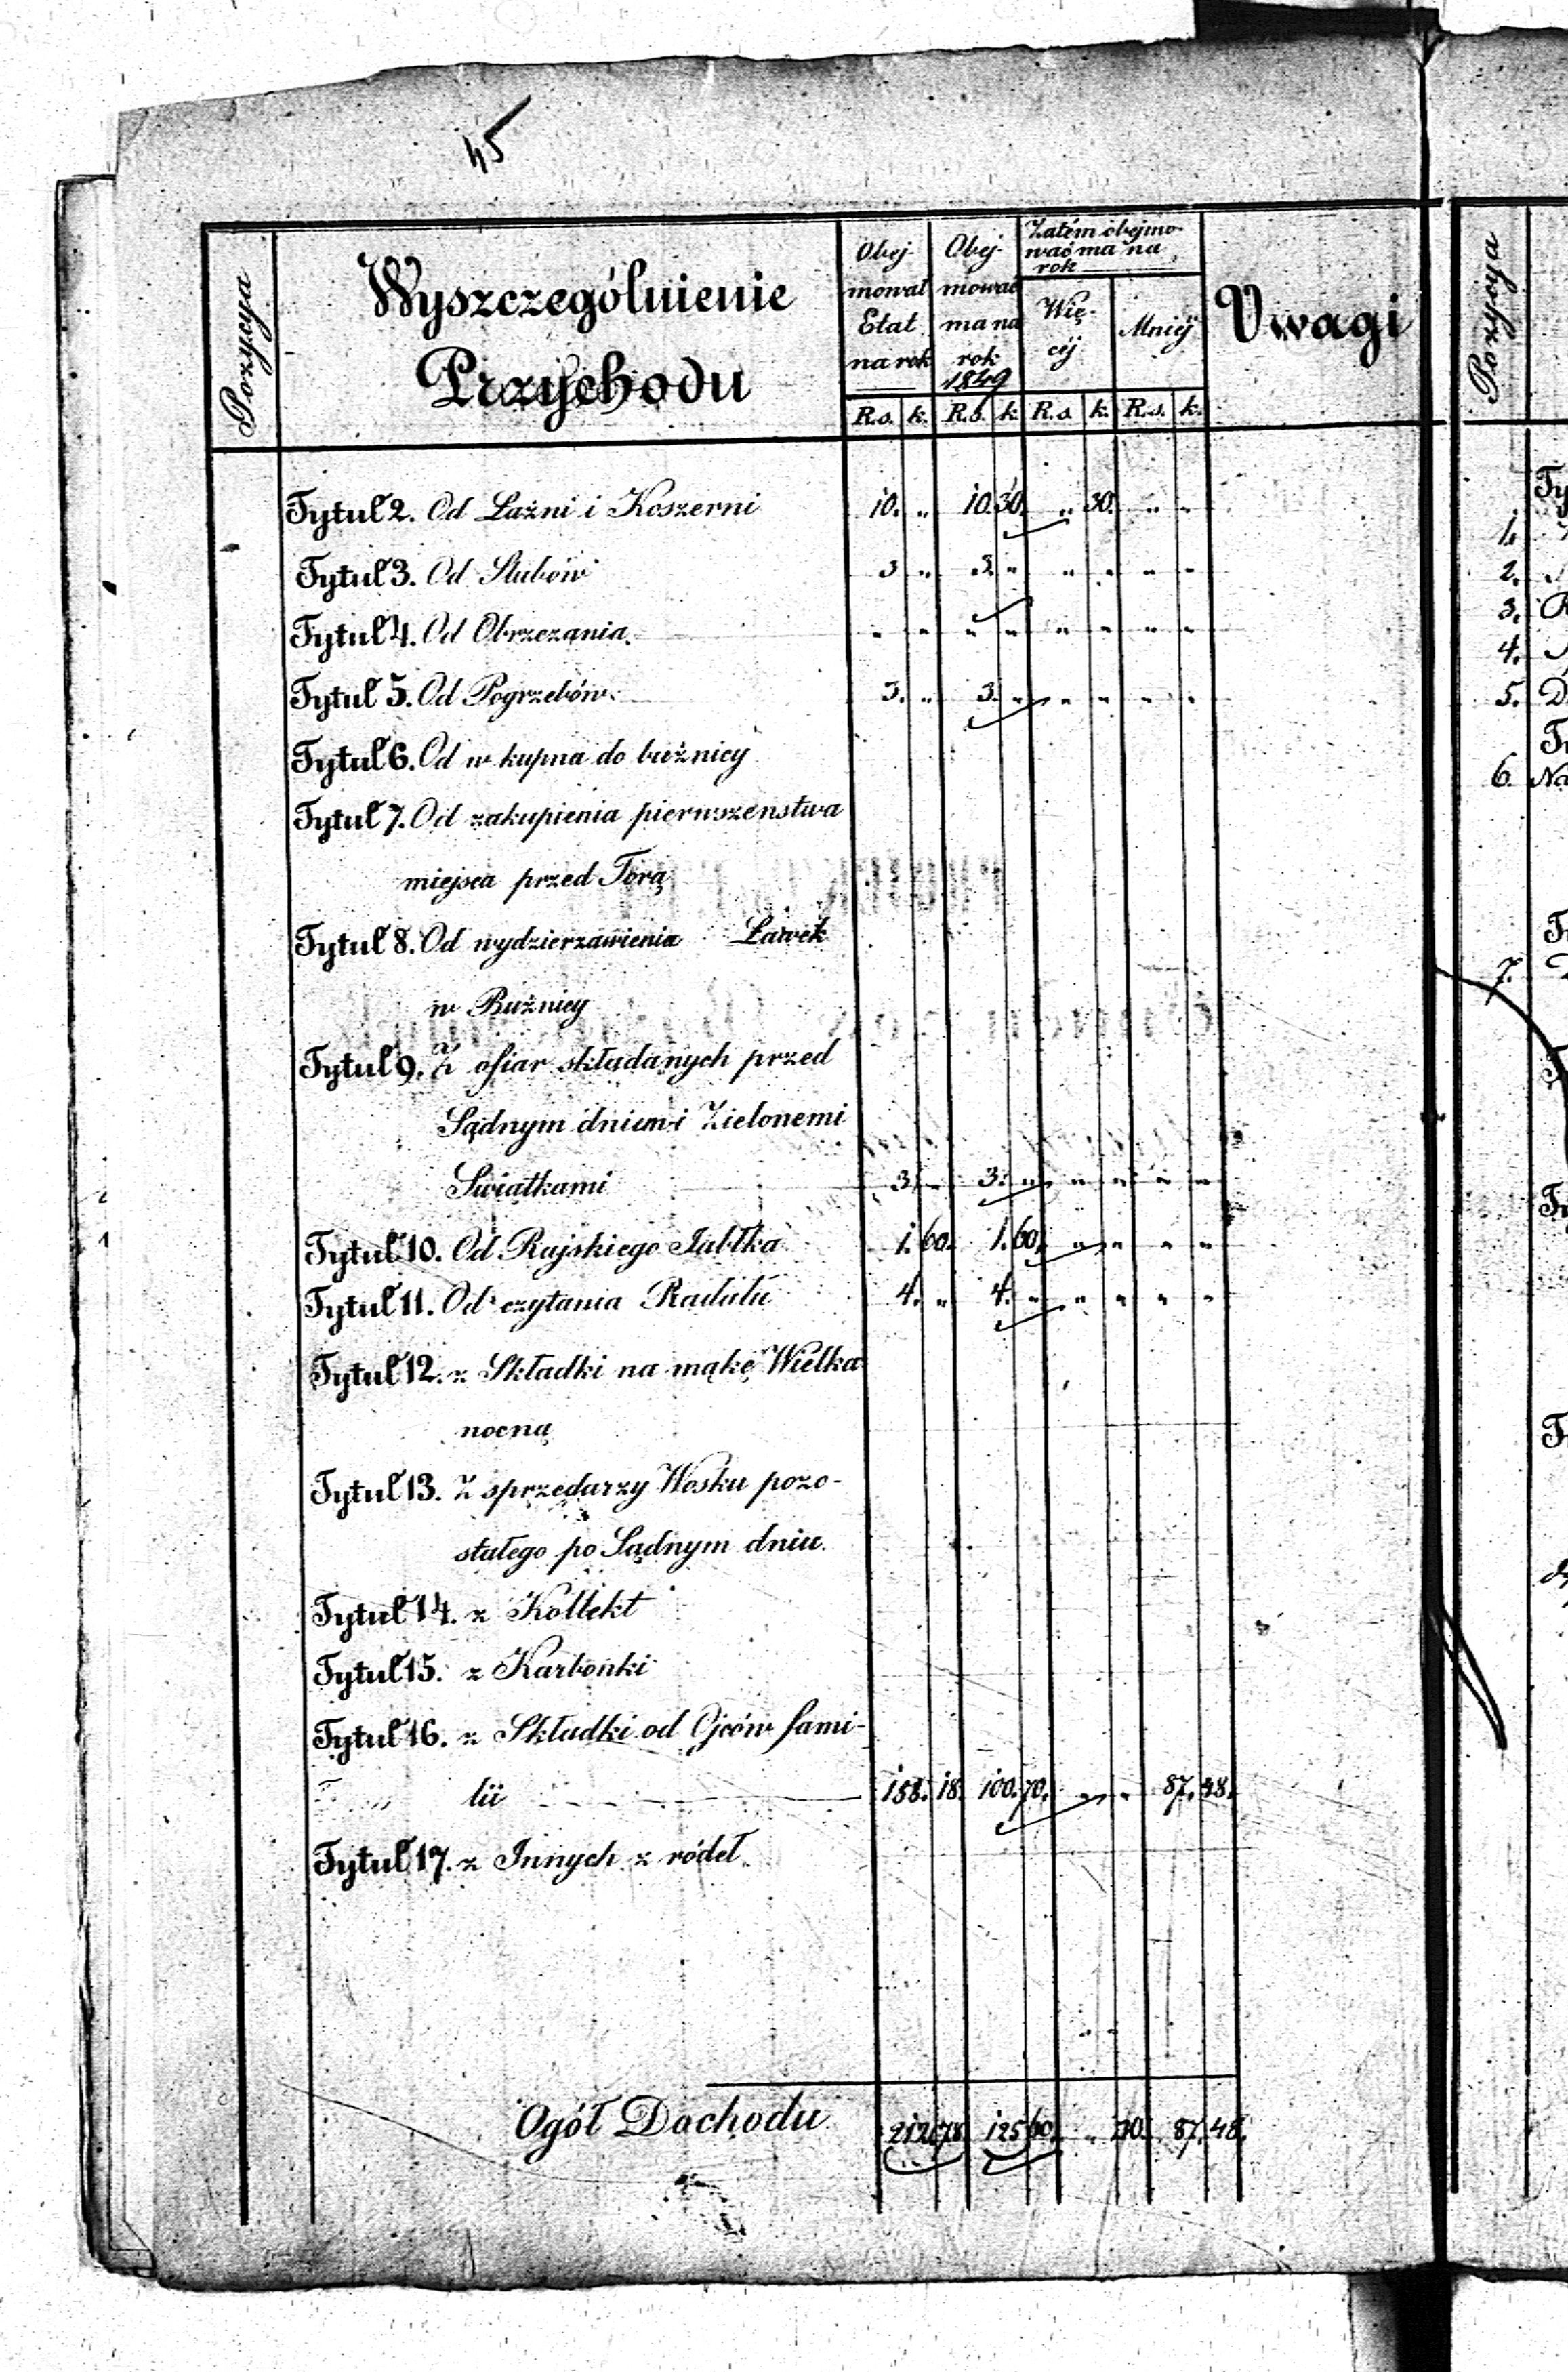 45
Pozycya
Wyszczególnienie
Przychodu
Obej-
mował
Etat
na rok
Obej-
mować
ma na
rok
1849
Zatém obejmo-
wać ma na
rok
Wię-
céj
Mniéj
Uwagi
R.s. k. R.s. k. R.s. k. R.s. k.
Tytuł 2. Od Łaźni i Koszerni 10. „ 10. 30. „ 30. „ „
Tytuł 3. Od Slubów 3 „ 3. „ „ „ „ „
Tytuł 4. Od Obrzezania „ „ „ „ „ „ „ „
Tytuł 5. Od Pogrzebów 3. „ 3. „ „ „ „ „
Tytuł 6. Od w kupna do bużnicy
Tytuł 7. Od zakupienia pierwszenstwa
miejsca przed Torą
Tytuł 8. Od wydzierzawienia Ławek
w Bużnicy
Tytuł 9. Z ofiar składanych przed
Sądnym dniem i Zielonemi
Swiątkami 3. „ 3. „ „ „ „ „
Tytuł 10. Od Rajskiego Jabłka 1. 60. 1. 60. „ „ „ „
Tytuł 11. Od czytania Radału 4. „ 4. „ „ „ „ „
Tytuł 12. z Składki na mąkę Wielka
nocną
Tytuł 13. Z sprzedarzy Wosku pozo-
stałego po Sądnym dniu
Tytuł 14. z Kollekt
Tytuł 15. z Karbonki
Tytuł 16. z Składki od Ojców fami-
lii 158. 18. 100. 70. „ „ 87. 48.
Tytuł 17. z Innych z ródeł
Ogół Dochodu 212. 78. 125. 60. „ 30. 87. 48.
Pozycya
1.
2.
3.
4.
5.
6.
7.